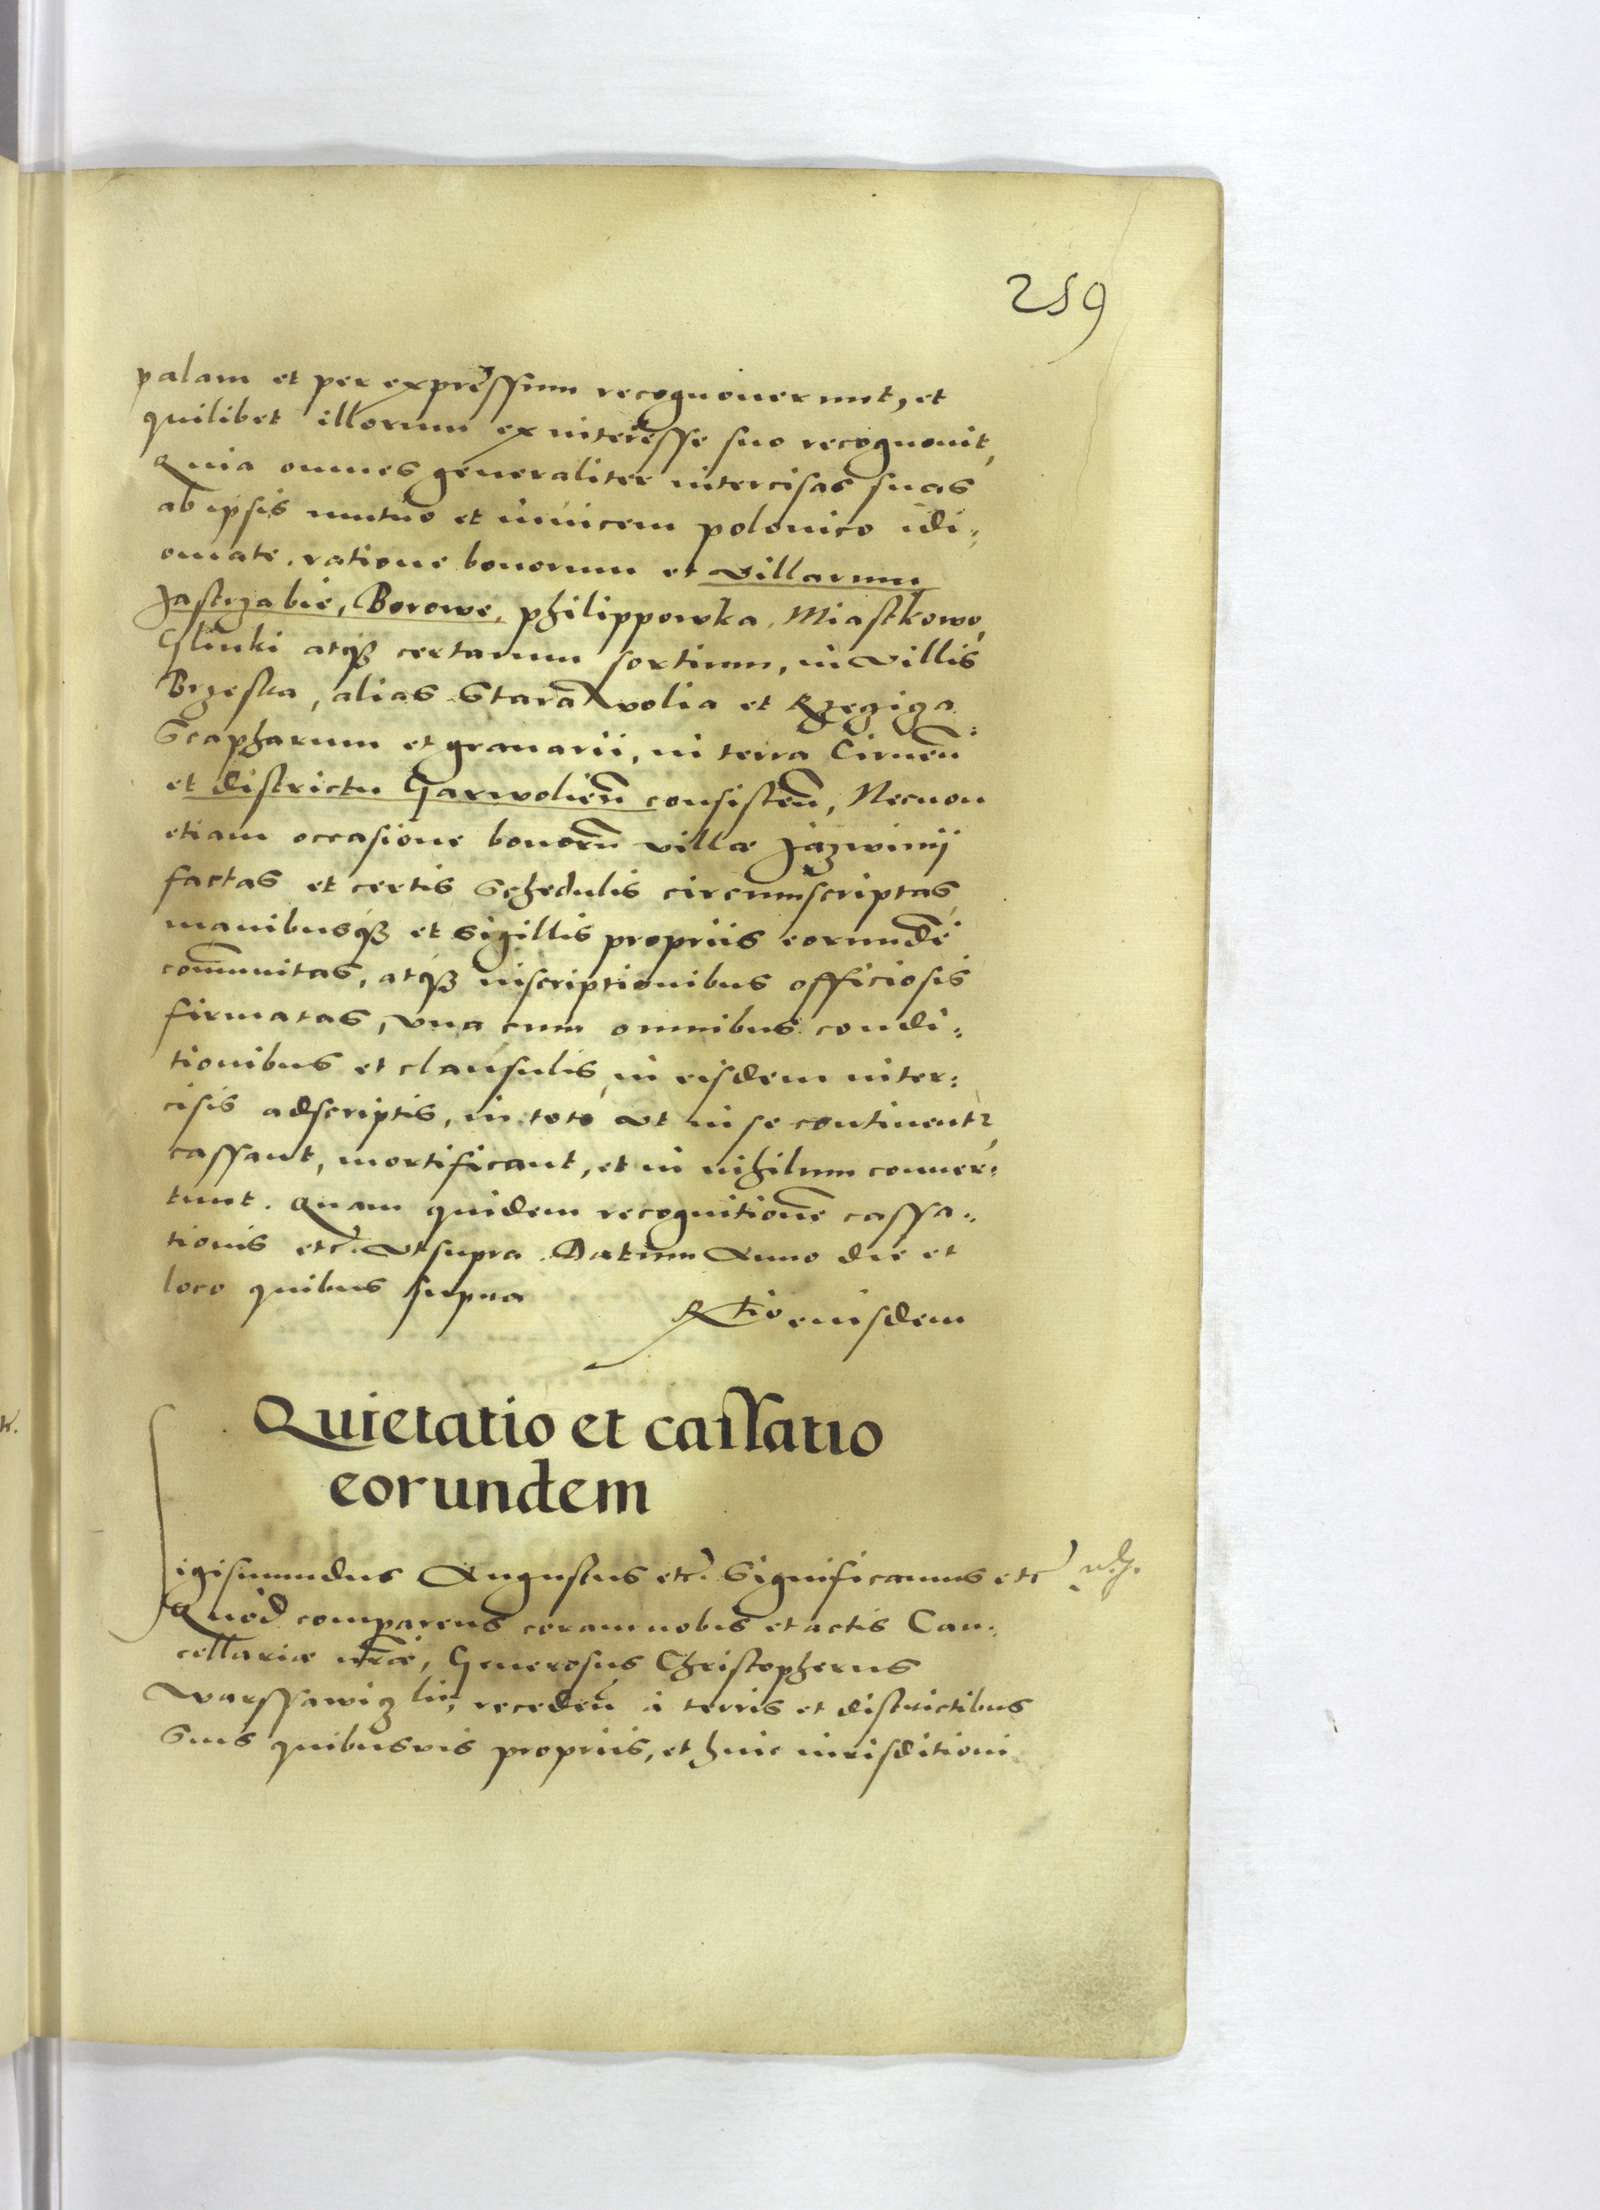 259
palam et per expressum recognouerunt, et
quilibet illorum ex interesse suo recognouit,
Quia omnes generaliter intercisas suas
ab ipsis mutuo et inuicem polonico idi:
omate, ratione bonorum et villarum
Jastrzabie, Borowe, Philippowka, Miastkowo,
Glinki atqȝ certarum sortium, in villis
Brzeska, alias Stara wolia et Rzegiga
Scapharum et granarii, in terra Cirnen̄
et districtu Garwolien̄ consisten̄, Necnon
etiam occasione bonorū villæ Jazwinij
factas et certis Schedulis circumscriptas
manibusqȝ et sigillis propriis eorundē
com̄unitas, atqȝ inscriptionibus officiosis
firmatas, vna cum omnibus condi:
tionibus et clausulis, in eisdem inter:
cisis adscriptis, in toto vt in se continentr,
cassant, mortificant, et in nihilum conuer:
tunt. Quam quidem recognitionē cassa:
tionis etc̄. vt supra. Datum Anno die et
loco quibus supra
Rtio eiusdem
Quietatio et cassatio
eorundem
Sigismundus Augustus etc̄. Significamus etc̄
Quod comparens coram nobis et actis Can:
cellariæ nr̄æ, Generosus Christopherus
Warssawiczki, receden̄ à terris et districtibus
Suis quibusvis propriis, et huic iurisditioni